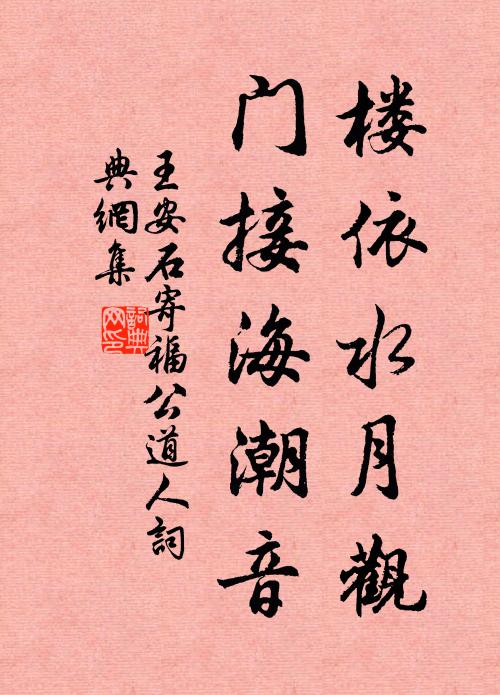 楼依水月觀
门接海潮音
王安石寄福公道人詞
典網集
詞典
网印